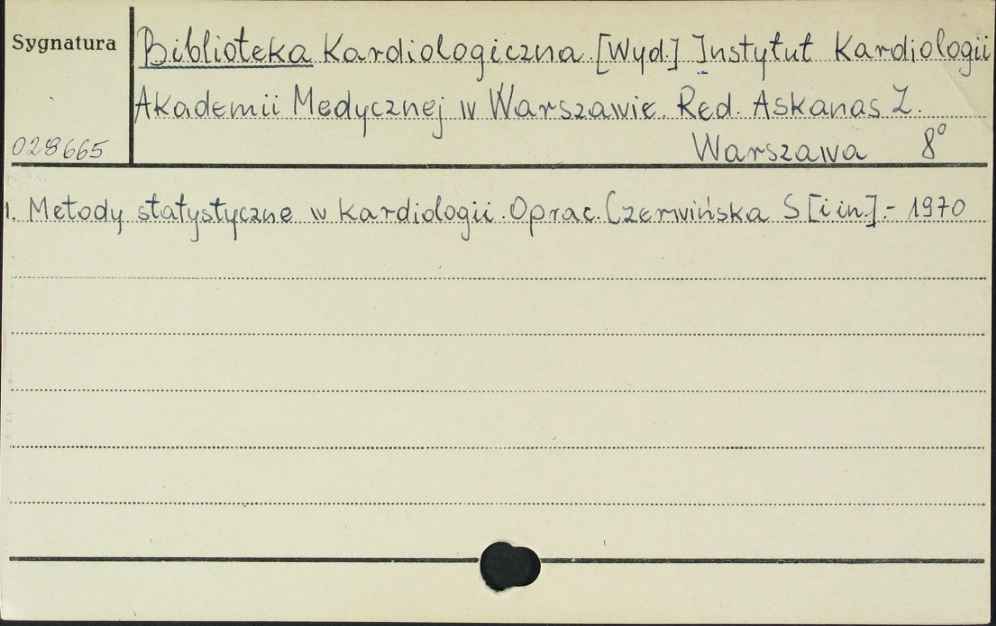 Sygnatura
028665
Biblioteka Kardiologiczna. [Wyd.] Instytut Kardiologii
Akademii Medycznej w Warszawie. Red. Askanas Z.
Warszawa 8°
1. Metody statystyczne w kardiologii. Oprac. Czerwińska S [i in.].- 1970